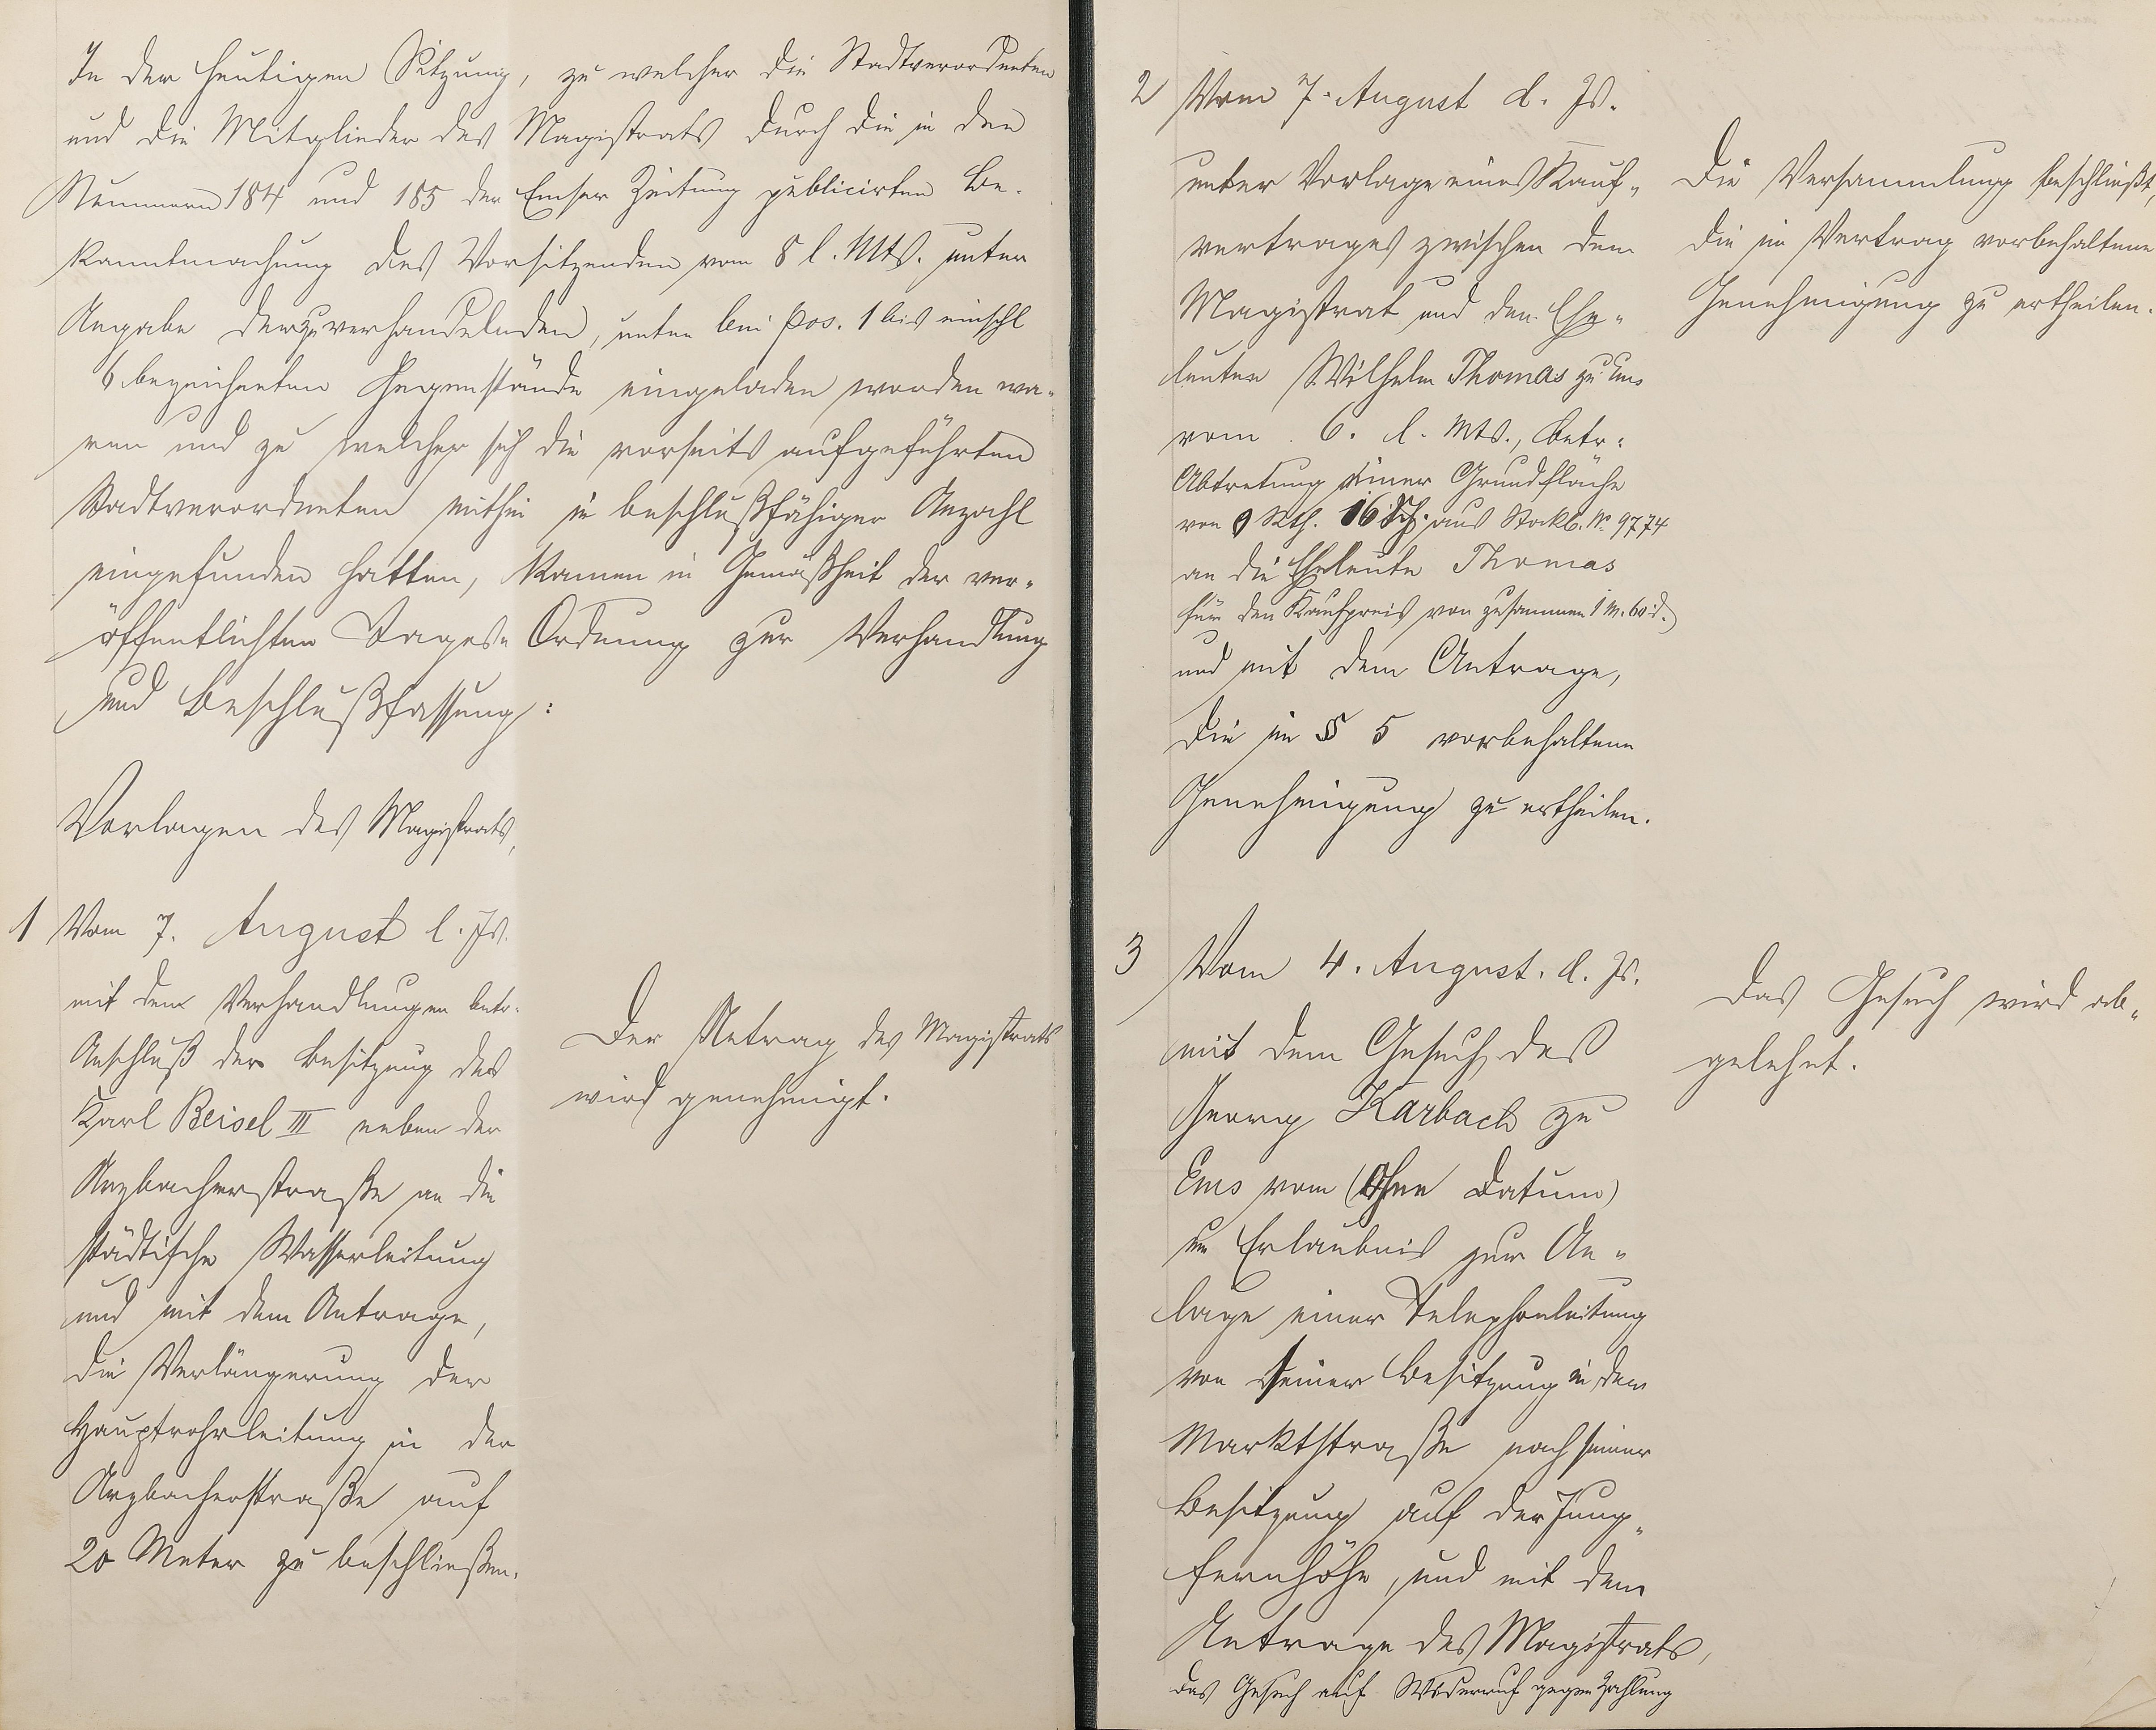 In der heutigen Sitzung, zu welcher die Stadtverordneten
und die Mitglieder des Magistrats durch die in den
Nummern 184 und 185 der Emser Zeitung publicirten Be-
kanntmachung des Vorsitzenden vom 8 l. Mts. unter
Angabe der zu verhandelnden, unten bei pos. 1 bis einschl
6 bezeichneten Gegenstände eingeladen worden wa-
ren und zu welcher sich die vorseits aufgeführten
Stadtverordneten mithin in beschlußfähiger Anzahl
eingefunden hatten, kamen in Gemäßheit der ver-
öffentlichten Tages-Ordnung zur Verhandlung
und Beschlußfassung:
Vorlagen des Magistrats,
1 Vom 7. August l. Js.
mit den Verhandlungen betr.
Anschluß der Besitzung des
Karl Beisel III neben der
Arzbacherstraße an die
städtische Wasserleitung
und mit dem Antrage,
die Verlängerung der
Hauptrohrleitung in der
Arzbacherstraße auf
20 Meter zu beschließen.
Der Antrag des Magistrats
wird genehmigt.
2 Vom 7. August d. Js.
unter Vorlage eines Kauf-
vertrages zwischen dem
Magistrat und den Ehe-
leuten Wilhelm Thomas zu Ems
vom 6. l. Mts., betr.
Abtretung einer Grundfläche
von 0 Rth. 16 Sch. aus Stockb. No 9774
an die Eheleute Thomas
für den Kaufpreis von zusammen 1 M. 60 d.
und mit dem Antrage,
die im § 5 vorbehaltene
Genehmigung zu ertheilen.
Die Versammlung beschließt,
die im Vertrag vorbehaltene
Genehmigung zu ertheilen.
3 Vom 4. August. d. Js.
mit dem Gesuch des
Georg Karbach zu
Ems vom (Ohne Datum)
um Erlaubnis zur An-
lage einer Telephonleitung
von seiner Besitzung in der
Marktstraße nach seiner
Besitzung auf der Jung-
fernhöhe, und mit dem
Antrage des Magistrats,
das Gesuch auf Widerruf gegen Zahlung
Das Gesuch wird ab-
gelehnt.